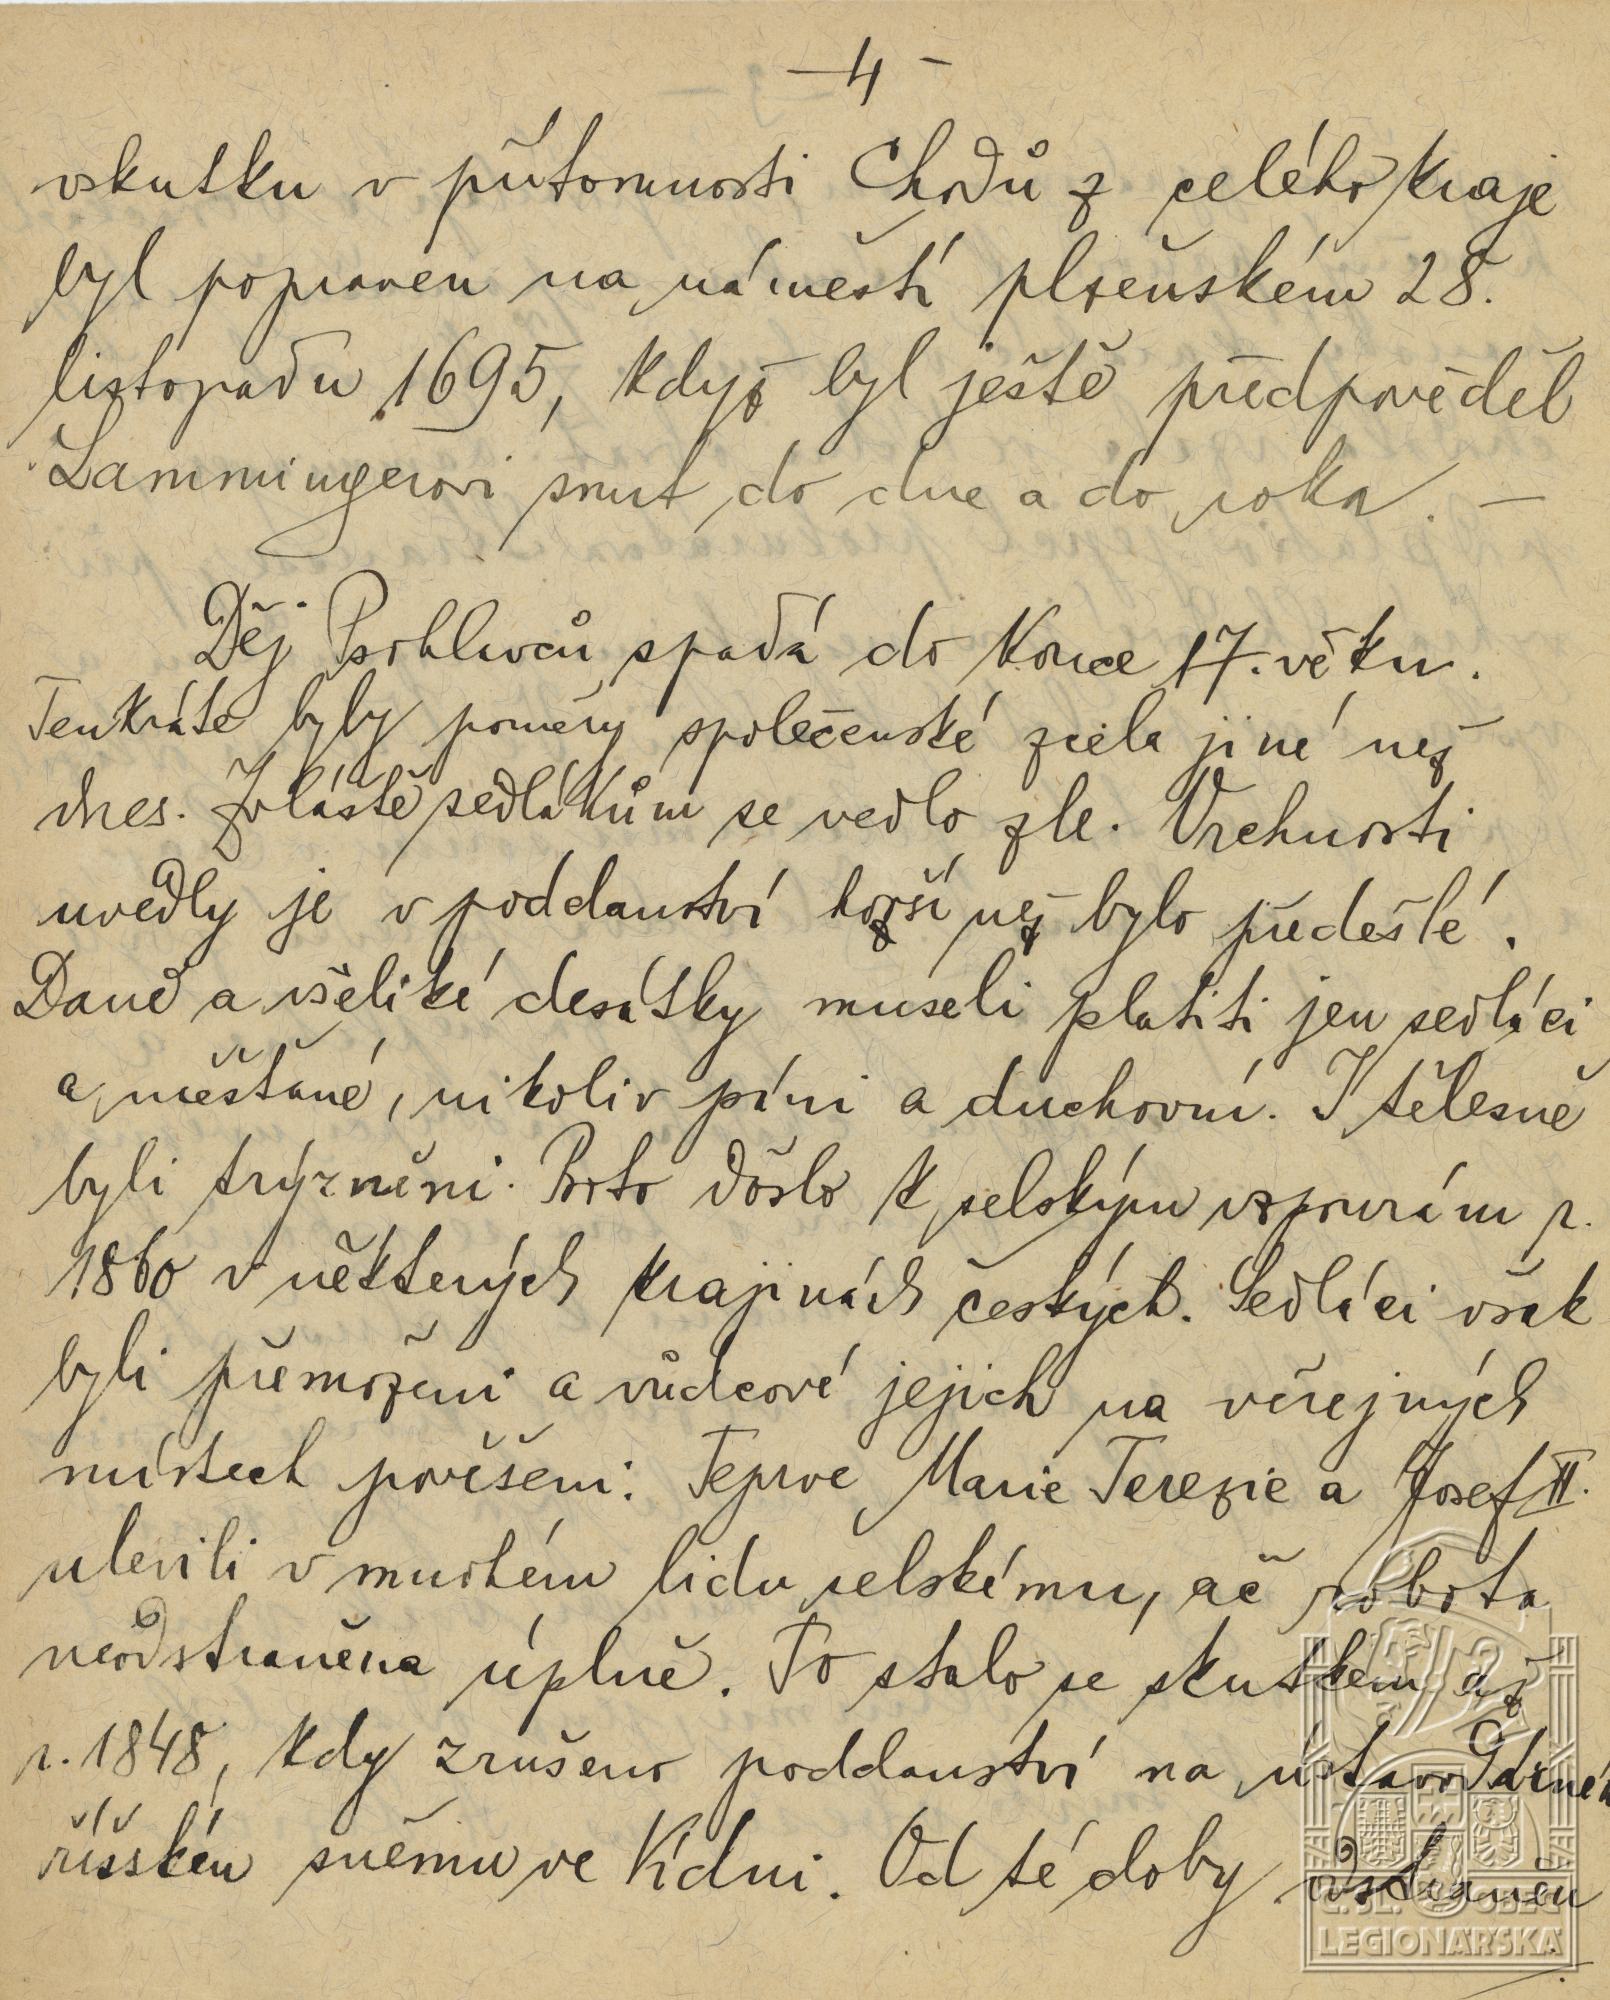 — 4 —
vskutku v přítomnosti Chodů z celého kraje
byl popraven na náměstí plzeňském 28.
listopadu 1695, když byl ještě předpověděl
Lammingerovi smrt do dne a do roka. —
Děj Psohlavců spadá do konce 17. věku.
Tenkráte byly poměry společenské zcela jiné než
dnes. Zvláště sedlákům se vedlo zle. Vrchnosti
uvedly je v poddanství horší než bylo předešlé.
Daně a všeliké desátky museli platiti jen sedláci
a měšťané, nikoliv páni a duchovní. I tělesně
byli trýzněni. Proto došlo k selským vzpourám r.
1860 v některých krajinách českých. Sedláci však
byli přemoženi a vůdcové jejich na veřejných
místech pověšeni. Teprve Marie Terezie a Josef II.
ulevili v mnohém lidu selskému, ač robota
neodstraněna úplně. To stalo se skutkem až
r. 1848, kdy zrušeno poddanství na ústavodárném
říšském sněmu ve Vídni. Od té doby odstraněn
Č. SL. OBEC
LEGIONÁŘSKÁ